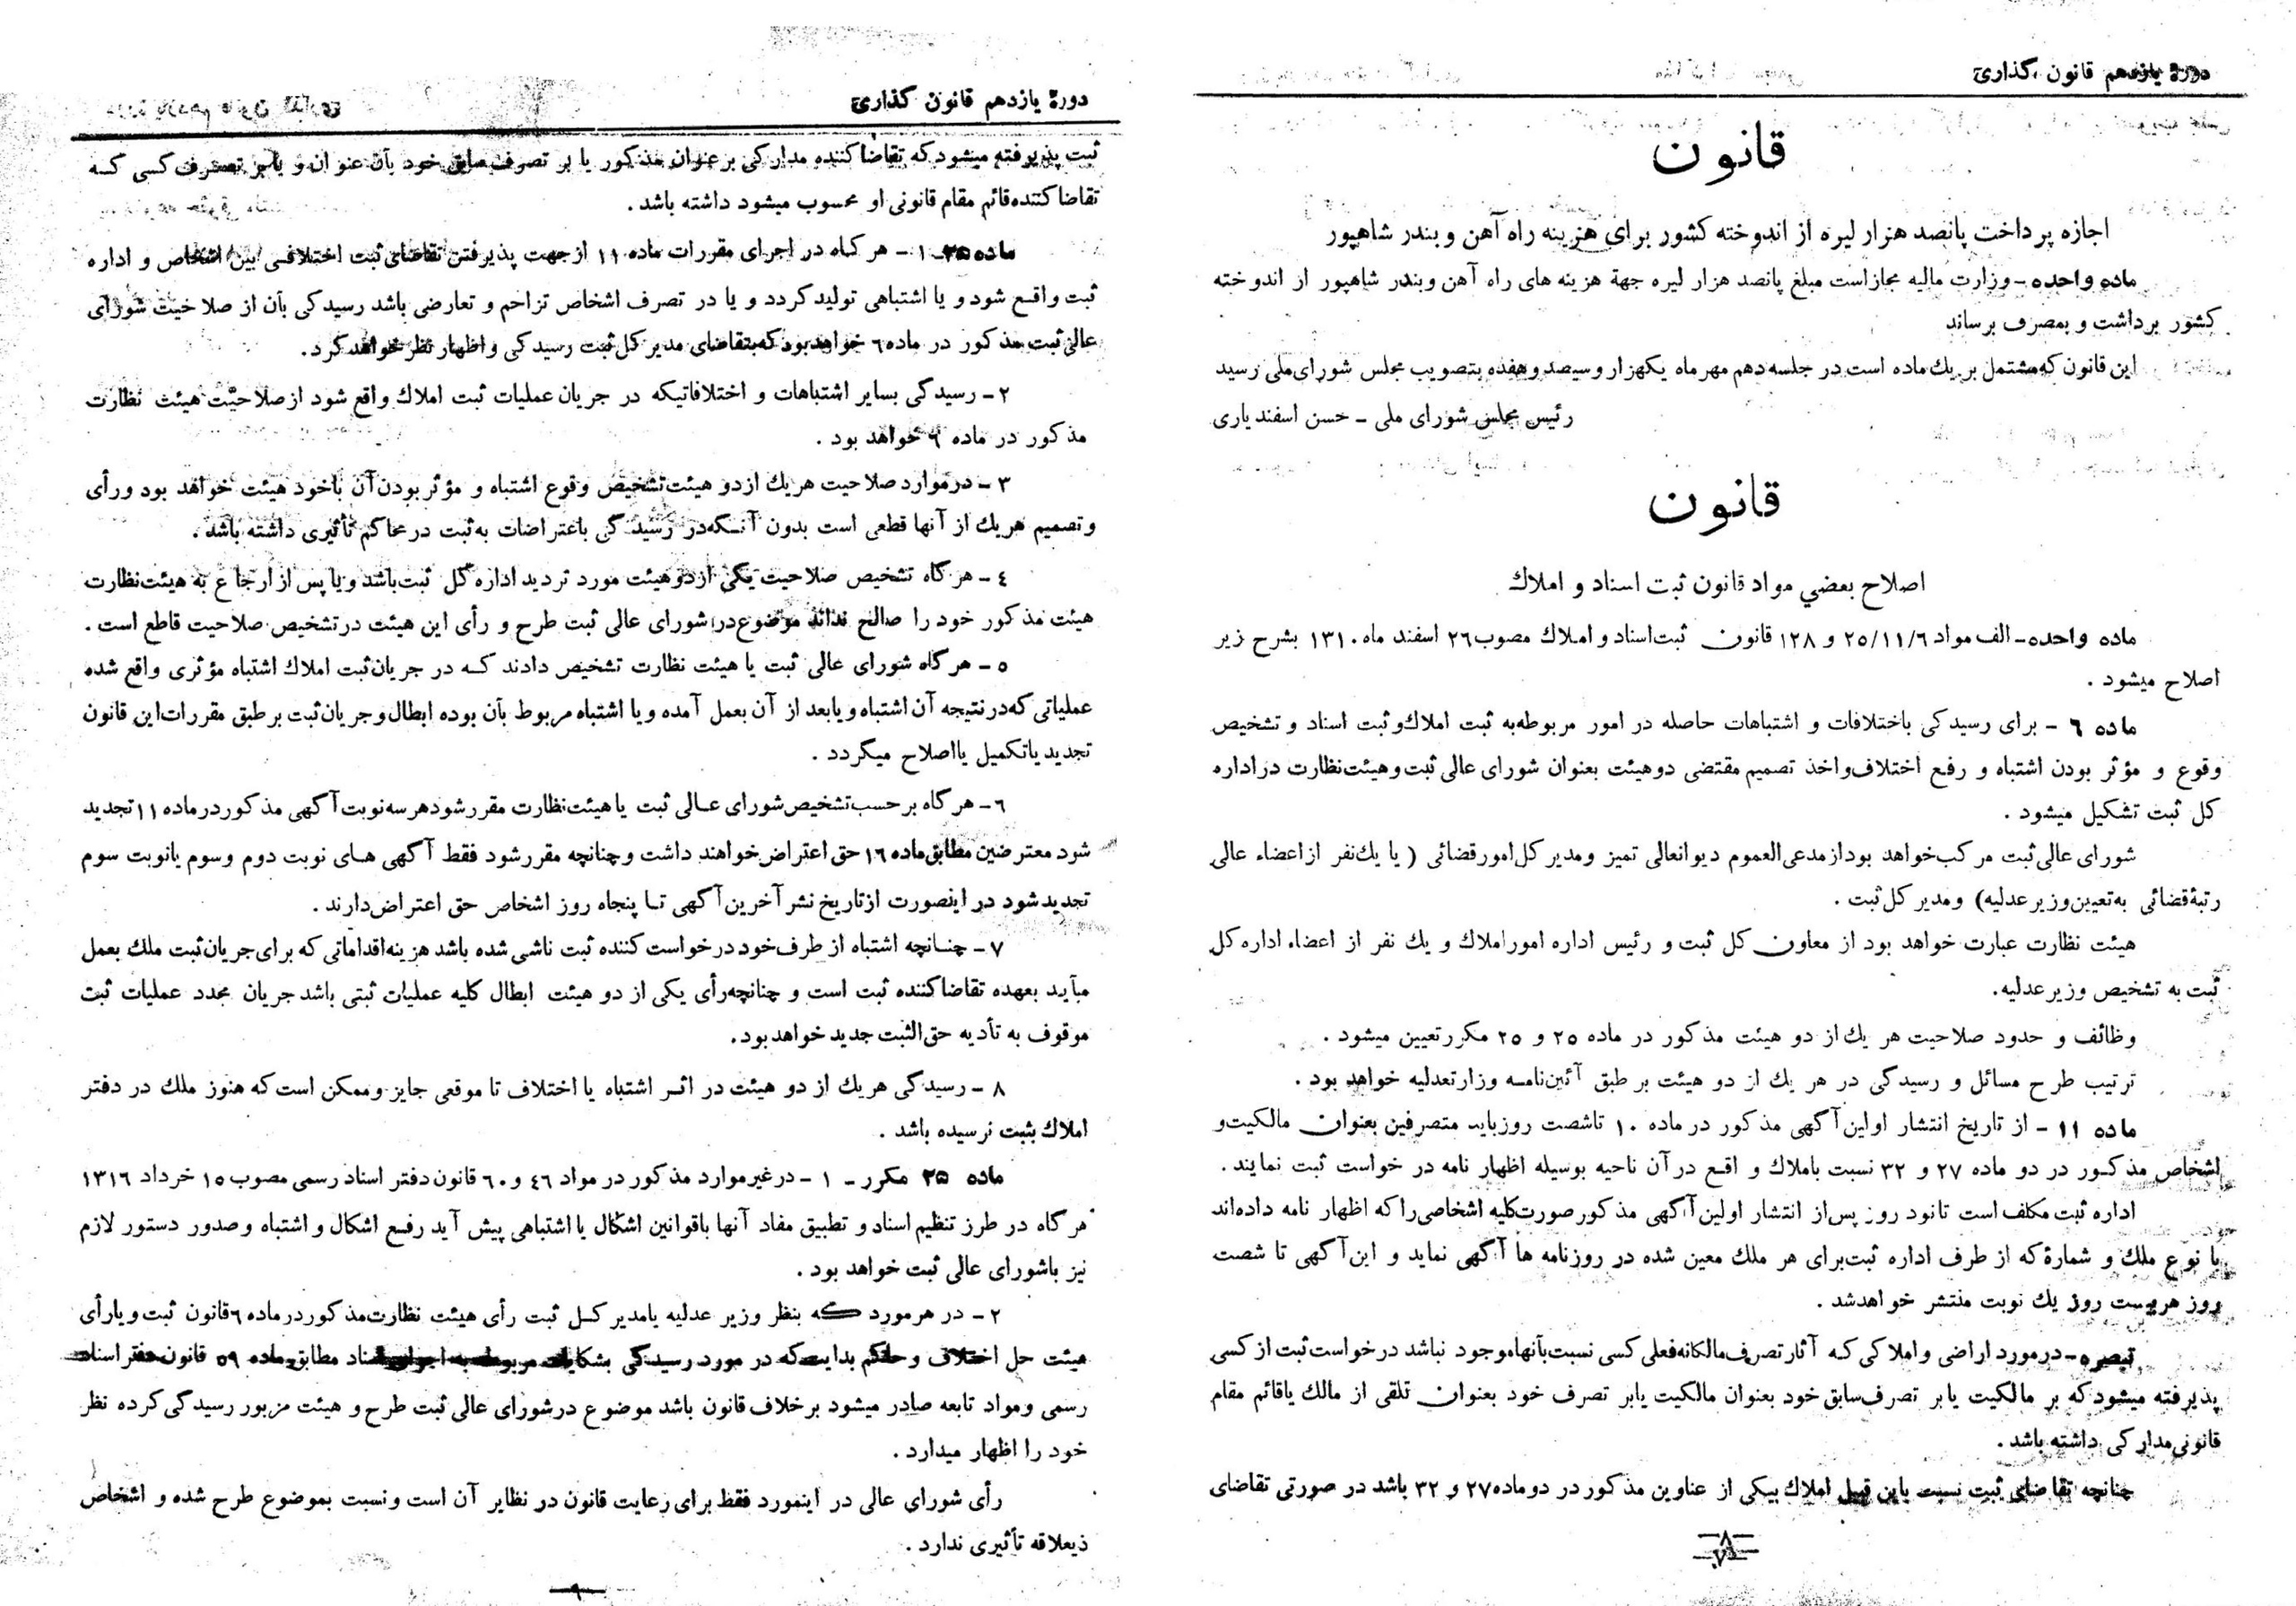 دورهٔ یازدهم قانون گذاری
قانون
اجازه پرداخت پانصد هزار لیره از اندوخته کشور برای هزینه راه آهن و بندر شاهپور
ماده واحده - وزارت مالیه مجاز است مبلغ پانصد هزار لیره جهة هزینه های راه آهن و بندر شاهپور از اندوخته
کشور برداشت و بمصرف برساند
این قانون که مشتمل بر یك ماده است در جلسه دهم مهر ماه یکهزار و سیصد و هفده بتصویب مجلس شورای ملی رسید
رئیس مجلس شورای ملی - حسن اسفندیاری
قانون
اصلاح بعضي مواد قانون ثبت اسناد و املاك
ماده واحده - الف مواد ۲۵/۱۱/۶ و ۱۲۸ قانون ثبت اسناد و املاك مصوب ۲۶ اسفند ماه ۱۳۱۰ بشرح زیر
اصلاح میشود .
ماده ۶ - برای رسیدگی باختلافات و اشتباهات حاصله در امور مربوطه به ثبت املاك و ثبت اسناد و تشخیص
وقوع و مؤثر بودن اشتباه و رفع اختلاف واخذ تصمیم مقتضی دو هیئت بعنوان شورای عالی ثبت و هیئت نظارت در اداره
کل ثبت تشکیل میشود .
شورای عالی ثبت مرکب خواهد بود از مدعی العموم دیوانعالی تمیز و مدیر کل امور قضائی ( یا یك نفر از اعضاء عالی
رتبهٔ قضائی به تعیین وزیر عدلیه) و مدیر کل ثبت .
هیئت نظارت عبارت خواهد بود از معاون کل ثبت و رئیس اداره امور املاك و یك نفر از اعضاء اداره کل
ثبت به تشخیص وزیر عدلیه.
وظائف و حدود صلاحیت هر یك از دو هیئت مذکور در ماده ۲۵ و ۲۵ مکرر تعیین میشود .
ترتیب طرح مسائل و رسیدگی در هر یك از دو هیئت بر طبق آئین نامه وزارتعدلیه خواهد بود .
ماده ۱۱ - از تاریخ انتشار اولین آگهی مذکور در ماده ۱۰ تا شصت روز باید متصرفین بعنوان مالکیت و
اشخاص مذکور در دو ماده ۲۷ و ۳۲ نسبت باملاك و اقع در آن ناحیه بوسیله اظهار نامه در خواست ثبت نمایند .
اداره ثبت مکلف است تا نود روز پس از انتشار اولین آگهی مذکور صورت کلیه اشخاصی را که اظهار نامه داده اند
با نوع ملك و شمارهٔ که از طرف اداره ثبت برای هر ملك معین شده در روزنامه ها آگهی نماید و این آگهی تا شصت
روز هر بیست روز یك نوبت منتشر خواهد شد .
تبصره - در مورد اراضی و املاکی که آثار تصرف مالکانه فعلی کسی نسبت بآنها موجود نباشد درخواست ثبت از کسی
پذیرفته میشود که بر مالکیت یا بر تصرف سابق خود بعنوان مالکیت یا بر تصرف خود بعنوان تلقی از مالك یا قائم مقام
قانونی مدارکی داشته باشد .
چنانچه تقاضای ثبت نسبت باین قبیل املاك بیکی از عناوین مذکور در دو ماده ۲۷ و ۳۲ باشد در صورتی تقاضای
۸
دورهٔ یازدهم قانون گذاری
ثبت پذیرفته میشود که تقاضا کننده مدارکی بر عنوان مذکور یا بر تصرف سابق خود بآن عنوان و یا بر تصرف کسی که
تقاضا کننده قائم مقام قانونی او محسوب میشود داشته باشد .
ماده ۲۵ - ۱ - هر گاه در اجرای مقررات ماده ۱۱ از جهت پذیرفتن تقاضای ثبت اختلافی بین اشخاص و اداره
ثبت واقع شود و یا اشتباهی تولید گردد و یا در تصرف اشخاص تزاحم و تعارضی باشد رسیدگی بآن از صلاحیت شورای
عالی ثبت مذکور در ماده ۶ خواهد بود که بتقاضای مدیر کل ثبت رسیدگی و اظهار نظر خواهد کرد .
۲ - رسیدگی بسایر اشتباهات و اختلافاتیکه در جریان عملیات ثبت املاك واقع شود از صلاحیت هیئت نظارت
مذکور در ماده ۶ خواهد بود .
۳ - در موارد صلاحیت هر یك از دو هیئت تشخیص وقوع اشتباه و مؤثر بودن آن با خود هیئت خواهد بود و رأی
و تصمیم هر یك از آنها قطعی است بدون آنکه در رسیدگی باعتراضات به ثبت در محاکم تأثیری داشته باشد .
٤ - هر گاه تشخیص صلاحیت یکی از دو هیئت مورد تردید اداره کل ثبت باشد و یا پس از ارجاع به هیئت نظارت
هیئت مذکور خود را صالح نداند موضوع در شورای عالی ثبت طرح و رأی این هیئت در تشخیص صلاحیت قاطع است .
۵ - هر گاه شورای عالی ثبت یا هیئت نظارت تشخیص دادند که در جریان ثبت املاك اشتباه مؤثری واقع شده
عملیاتی که در نتیجه آن اشتباه و یا بعد از آن بعمل آمده و یا اشتباه مربوط بآن بوده ابطال و جریان ثبت بر طبق مقررات این قانون
تجدید یا تکمیل یا اصلاح میگردد .
۶ - هر گاه بر حسب تشخیص شورای عالی ثبت یا هیئت نظارت مقرر شود هر سه نوبت آگهی مذکور در ماده ۱۱ تجدید
شود معترضین مطابق ماده ۱۶ حق اعتراض خواهند داشت و چنانچه مقرر شود فقط آگهی های نوبت دوم و سوم یا نوبت سوم
تجدید شود در اینصورت از تاریخ نشر آخرین آگهی تا پنجاه روز اشخاص حق اعتراض دارند .
۷ - چنانچه اشتباه از طرف خود درخواست کننده ثبت ناشی شده باشد هزینه اقداماتی که برای جریان ثبت ملك بعمل
میآید بعهده تقاضا کننده ثبت است و چنانچه رأی یکی از دو هیئت ابطال کلیه عملیات ثبتی باشد جریان مجدد عملیات ثبت
موقوف به تأدیه حق الثبت جدید خواهد بود.
۸ - رسیدگی هر یك از دو هیئت در اثر اشتباه یا اختلاف تا موقعی جایز و ممکن است که هنوز ملك در دفتر
املاك بثبت نرسیده باشد .
ماده ۲۵ مکرر - ۱ - در غیر موارد مذکور در مواد ٤۶ و ۶۰ قانون دفتر اسناد رسمی مصوب ۱۵ خرداد ۱۳۱۶
هر گاه در طرز تنظیم اسناد و تطبیق مفاد آنها با قوانین اشکال یا اشتباهی پیش آید رفع اشکال و اشتباه و صدور دستور لازم
نیز با شورای عالی ثبت خواهد بود .
۲ - در هر مورد که بنظر وزیر عدلیه یا مدیر کل ثبت رأی هیئت نظارت مذکور در ماده ۶ قانون ثبت و یا رأی
هیئت حل اختلاف و حاکم بدایت که در مورد رسیدگی بشکایات مربوطه به اجرای اسناد مطابق ماده ۵۹ قانون دفتر اسناد
رسمی و مواد تابعه صادر میشود بر خلاف قانون باشد موضوع در شورای عالی ثبت طرح و هیئت مزبور رسیدگی کرده نظر
خود را اظهار میدارد .
رأی شورای عالی در اینمورد فقط برای رعایت قانون در نظایر آن است و نسبت بموضوع طرح شده و اشخاص
ذیعلاقه تأثیری ندارد .
۹